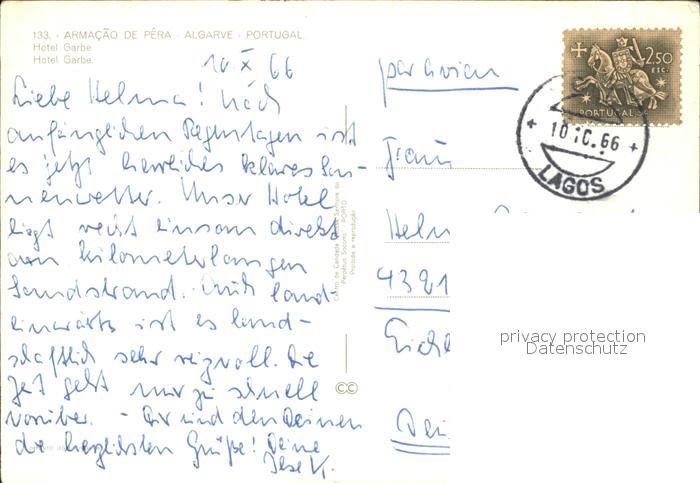 133. - ARMAÇÃO DE PÊRA - ALGARVE - PORTUGAL
Hotel Garbe
Hotel Garbe.
10 X 66
Liebe Helma! Nach
anfänglichen Regentagen ist
es jetzt herrliches klares Son-
nenwetter. Unser Hotel
liegt recht einsam direkt
am kilometerlangen
Sandstrand. Auch land-
einwärts ist es land-
schaftlich sehr reizvoll. Die
Zeit geht nur zu schnell
vorüber. - Dir und den Deinen
die herzlichsten Grüße! Deine
Ilse K.
par avion
Frau
Helm
4321
PORTO
Proibida a reprodução
CC
2$50
ESC.
PORTUGAL
10.10.66
LAGOS
privacy protection
Datenschutz